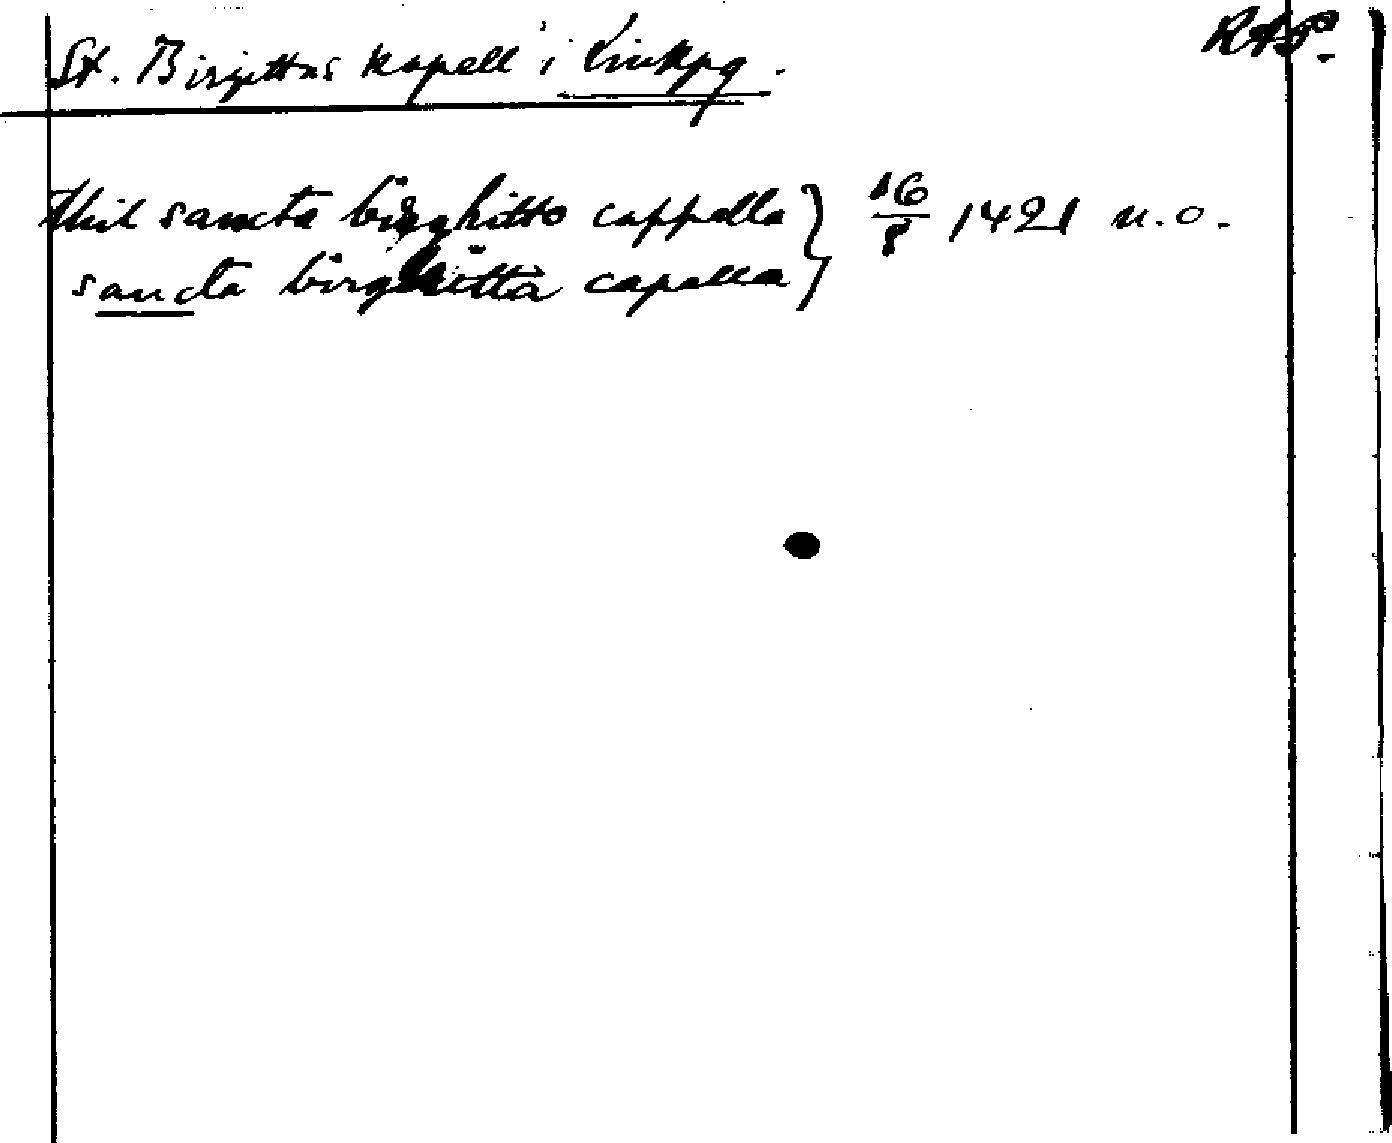 St. Birgittas kapell i Linkpg. RAP.
thil sancta birghitto cappella } 16/8 1421 n.o.
sancta birghitta capella